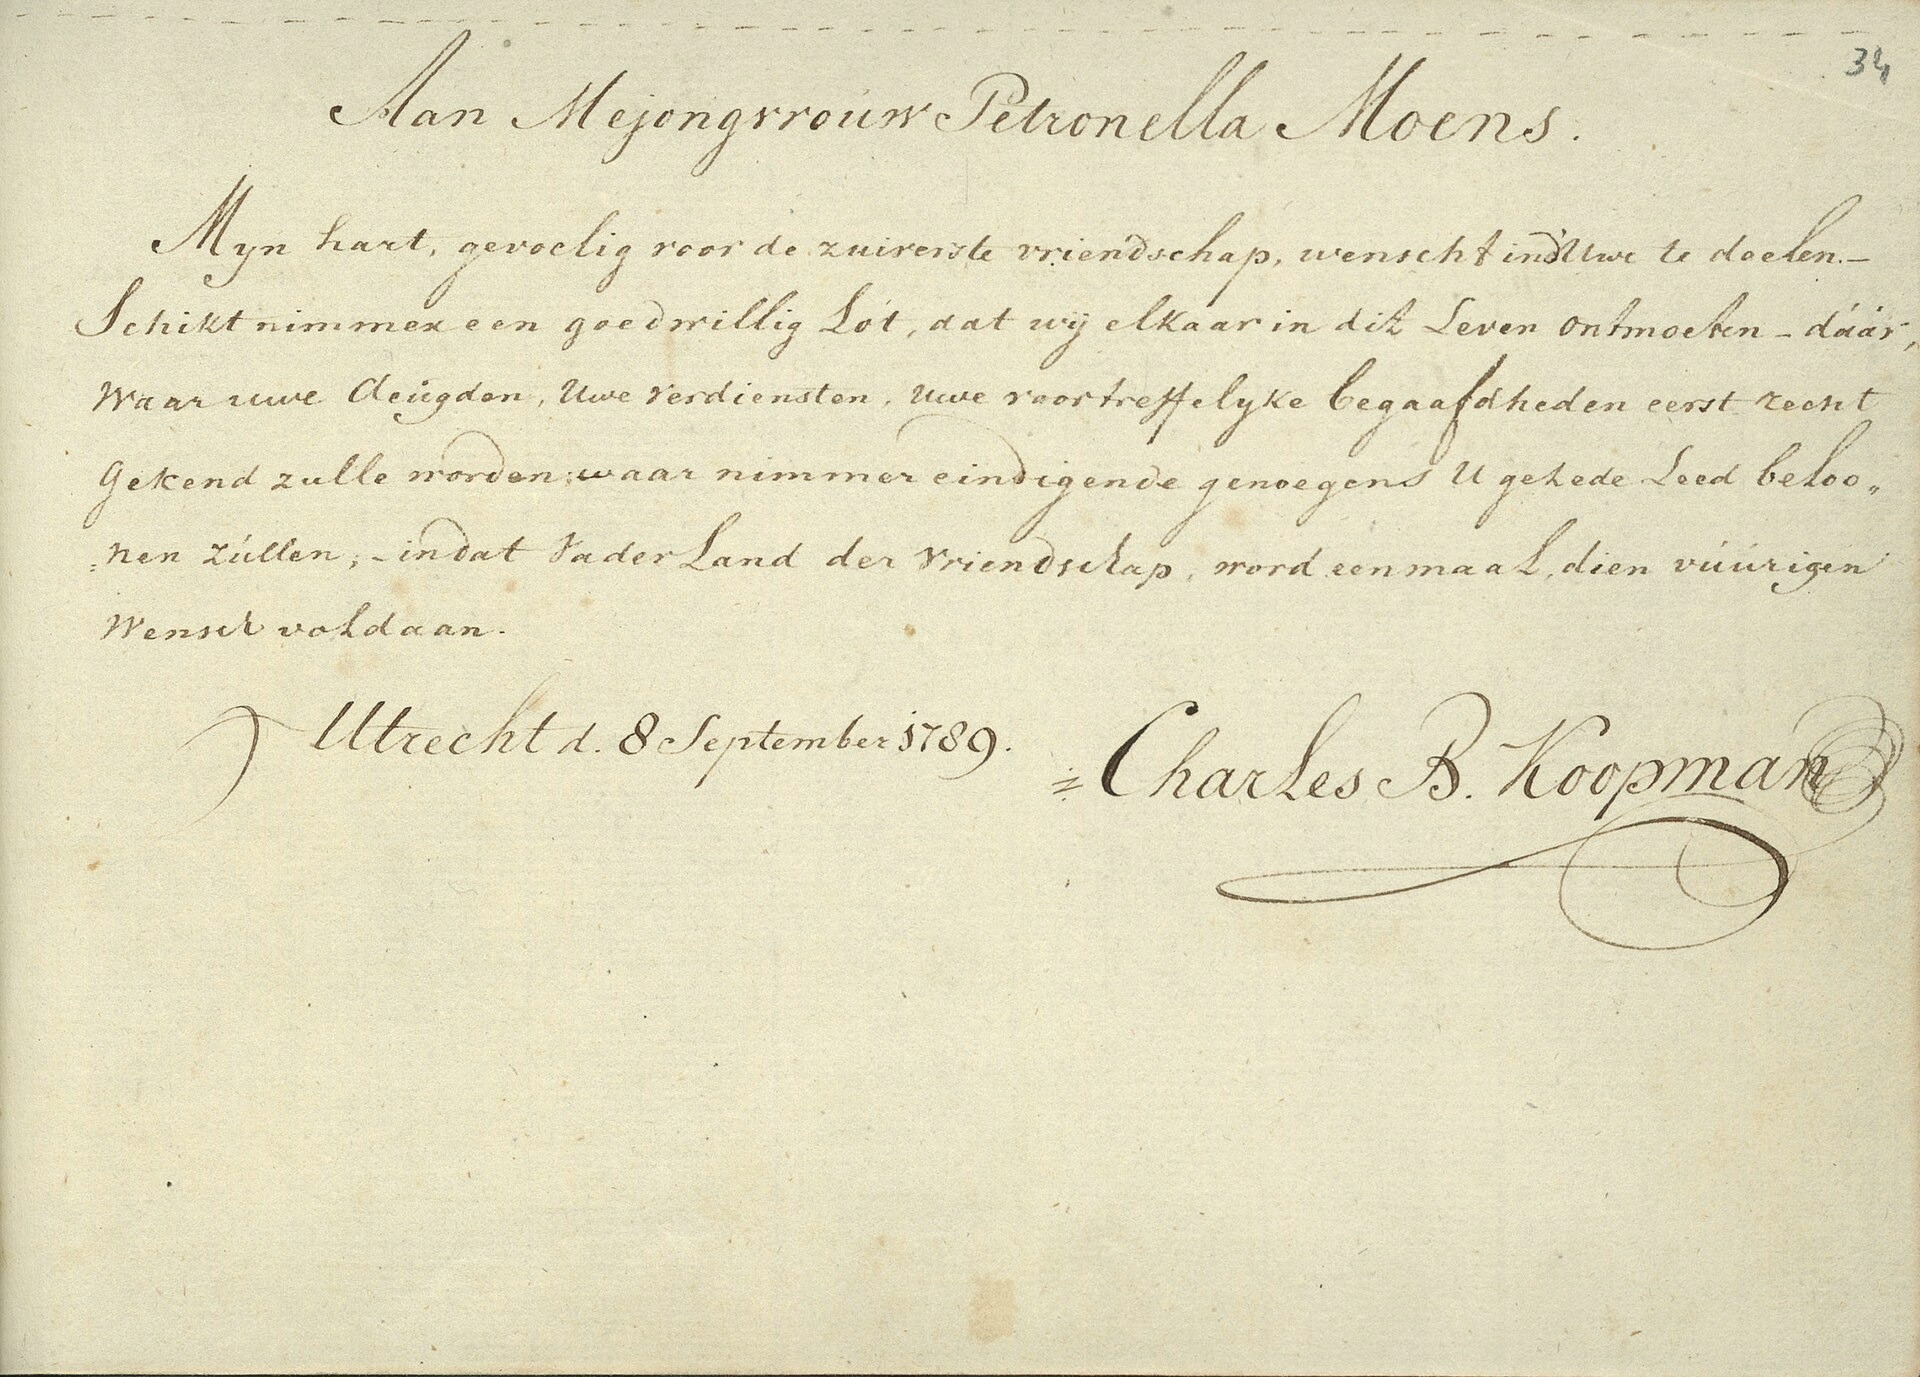 34
Aan Mejongvrouw Petronella Moens.
Myn hart, gevoelig voor de zuiverste vriendschap, wenscht in d'Uwe te deelen.—
Schikt nimmer een goedwillig Lót, dat wij elkaar in dit Leven ontmoeten – dáár,
Waar uwe deugden, Uwe verdiensten, Uwe voortreffelyke begaafdheden eerst recht
Gekend zulle worden; waar nimmer eindigende genoegens U gelede Leed beloo„
=nen zúllen; – in dat VaderLand der Vriendschap, word eenmaal, dien vúúrigen
Wensch voldaan.
Utrecht d. 8 September 1789.
= Charles B. Koopman